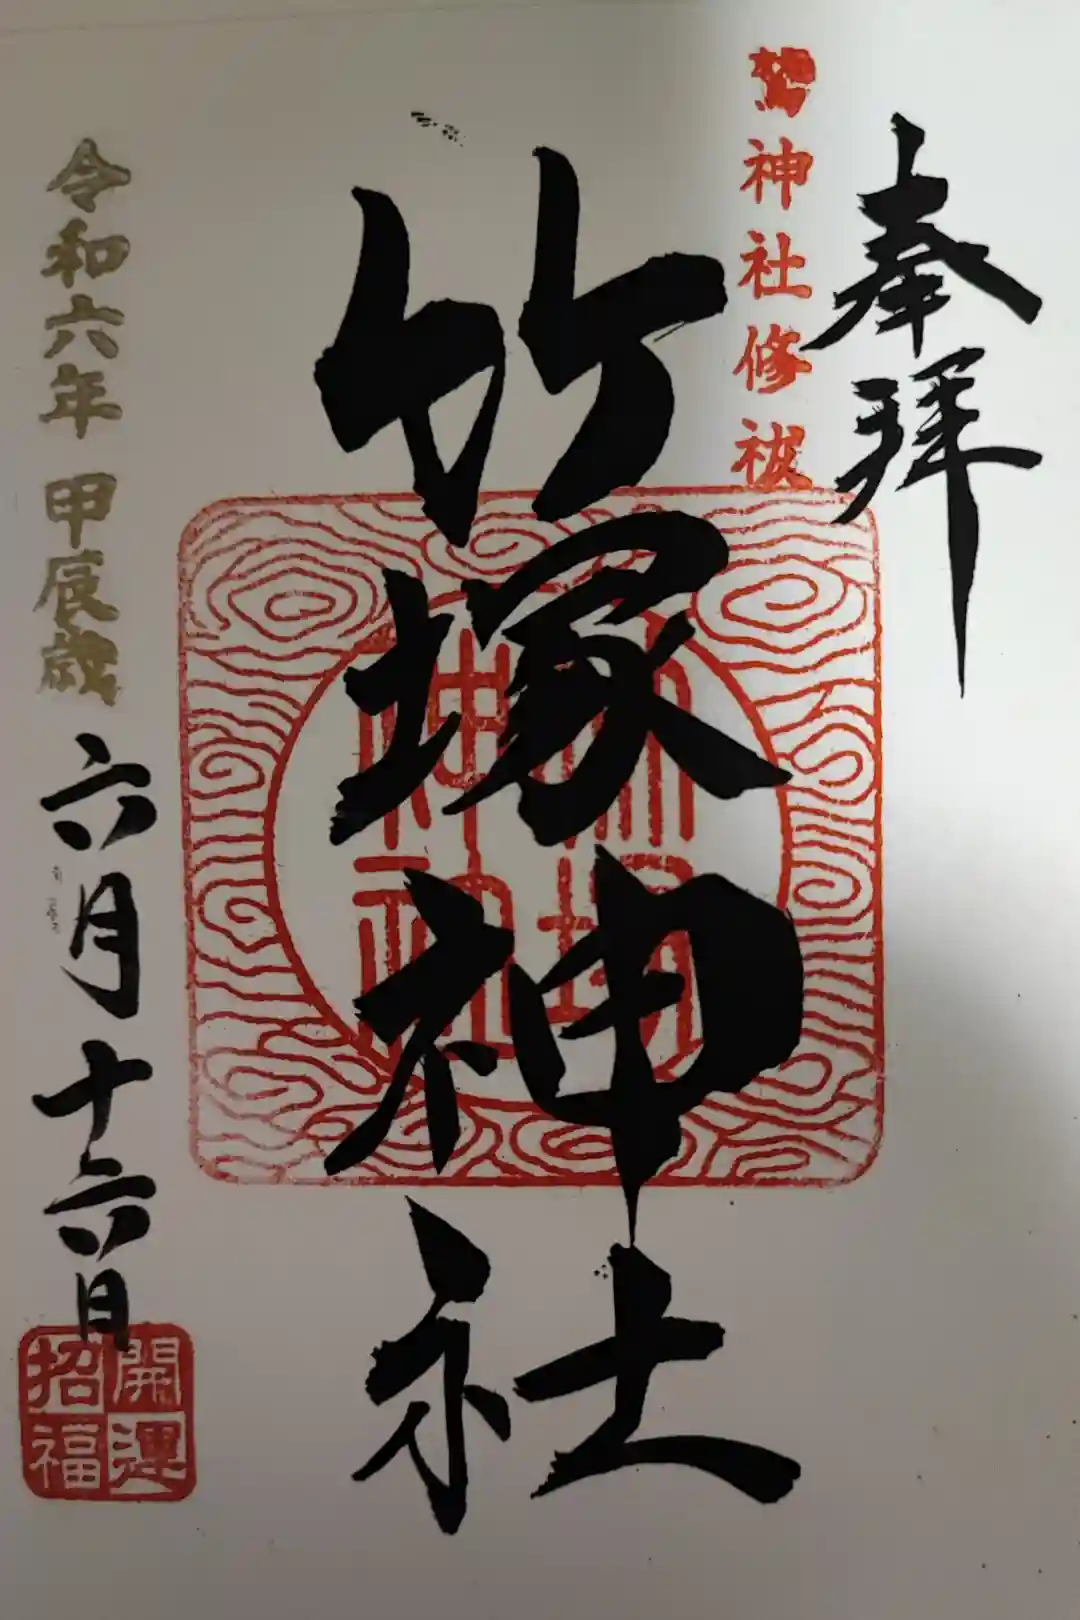 奉拝
鷲神社修祓
竹塚神社
竹塚神社
令和六年 甲辰歳
六月十六日
開運
招福